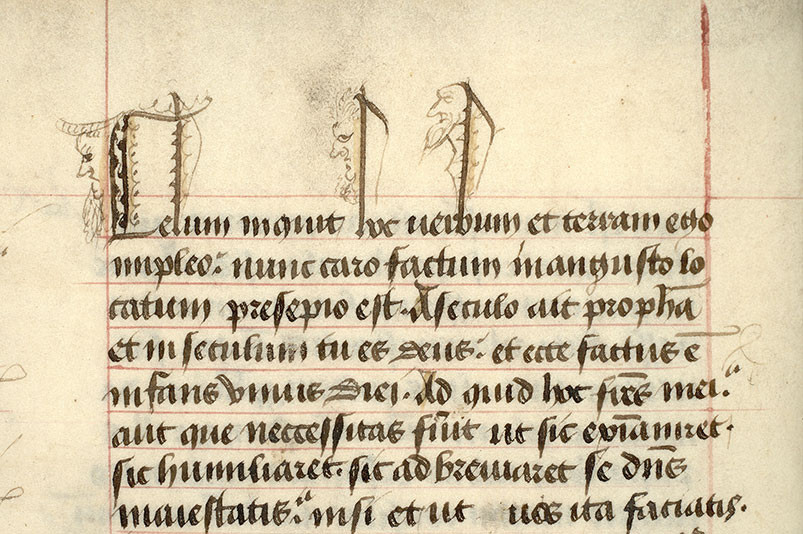 Celum inquit hoc uerbum et terram ego
impleo: nunc caro factum in angusto lo
catum presepio est. A seculo ait propha
et in seculum tu es deus: et ecce factus ē
infans vnius diei. Ad quid hoc fr̄es mei:
aut que neccessitas fuit ut sic exinaniret.
sic humiliaret. sic adbreuiaret se dn̄s
maiestatis: nisi et ut uos ita faciatis.